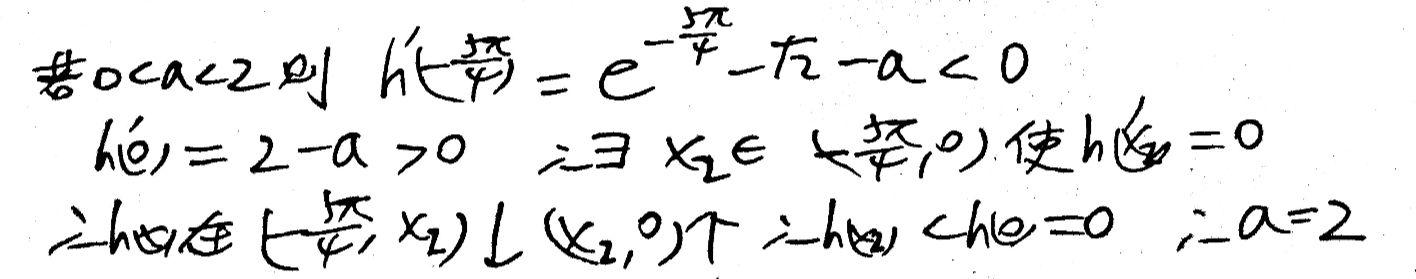 若0<a<2则 h'(-5π/4) = e^{-5π/4} - √2 - a < 0
h'(0) = 2-a > 0 ∴∃ x₂∈ (-5π/4, 0) 使h'(x₂) = 0
∴h(x)在 (-5π/4, x₂)↓ (x₂, 0)↑ ∴h(x₂) < h(0) = 0 ∴a=2